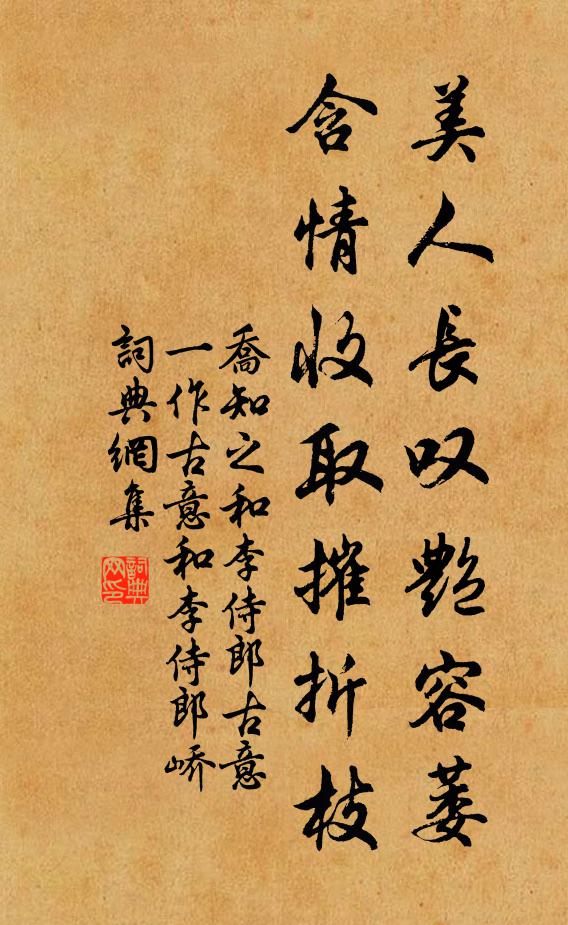 美人長叹艷容萎
含情收取摧折枝
喬知之和李侍郎古意
一作古意和李侍郎嶠
詞典網集
詞典网印